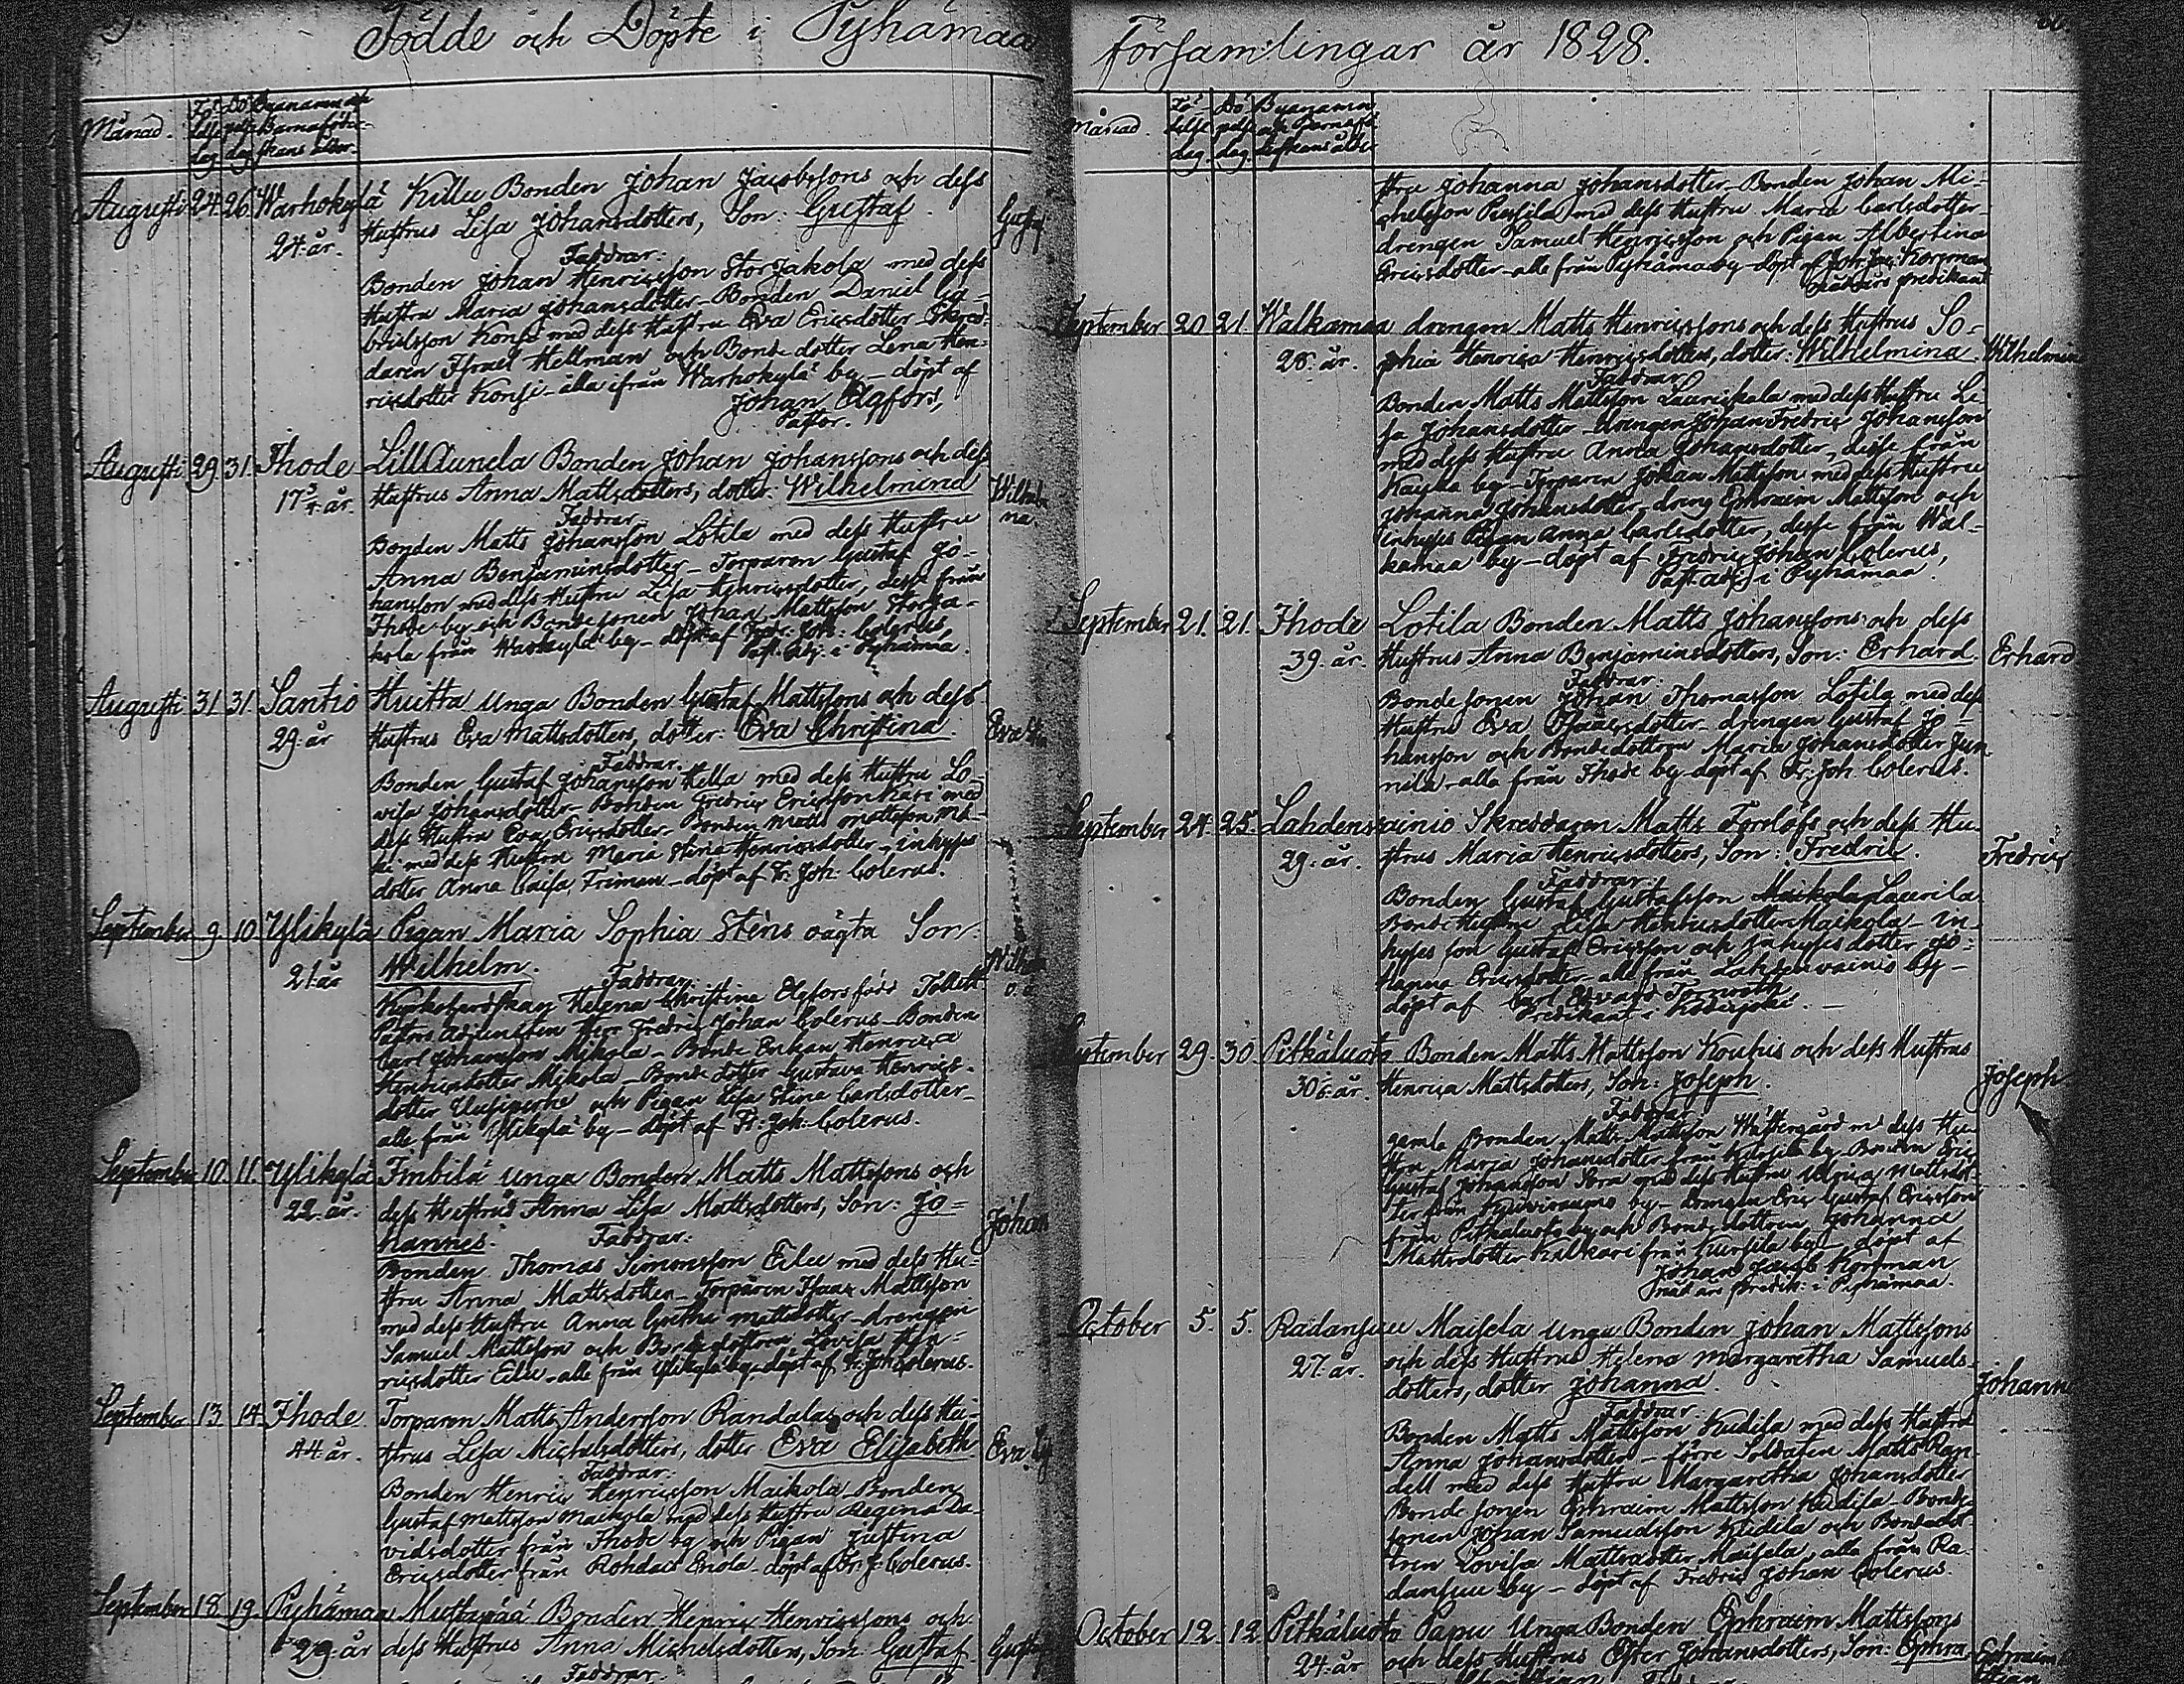 Födde och Döpte i Pyhämaa
Månad.
Augusti 24. 26. Warhokylä Killu Bonden Johan Jacobssons och dess
24. år. Hustrus Lisa Johansdotters, Son: Gustaf.
Gustaf
Faddrar:
Bonden Johan Henricsson Storjakola med dess
Hustru Maria Johansdotter - Bonden Daniel Ga-
brielsson Konsi med dess Hustru Eva Ericsdotter - Skred-
daren Israel Hellman och Bonde dotter Lena Hen-
ricsdotter Konsi - alla ifrån Warhokylä by - döpt af
Johan Elgfors,
Pastor.
Augusti 29 31. Ihode LillAunela Bonden Johan Johanssons och dess
17 3/4. år. Hustrus Anna Mattsdotters, dotter: Wilhelmina
Faddrar.
Bonden Matts Johansson Lotila med dess Hustru
Anna Benjaminsdotter - Torparen Gustaf Jo-
hansson med dess Hustru Lisa Henricsdotter, desse från
Ihode by och Bondesonen Johan Mattsson Storja-
kola från Warhokylä by - döpt af Fredr. Joh: Colerus
Past. Adj. i Pyhämaa.
Augusti 31 31. Santio Huitta Unga Bonden Gustaf Mattssons och dess
29. år Hustrus Eva Mattsdotters, dotter: Eva Christina.
Faddrar.
Bonden Gustaf Johansson Hella med dess Hustru Lo-
visa Johansdotter - Bonden Fredric Ericsson Kari med
dess Hustru Eva Ericsdotter - Bonden Matts Mattsson Mä-
ki med dess Hustru Maria Stina Henricsdotter - inhyses
dotter Anna Caisa Friman - döpt af Fr. Joh: Colerus.
September 9 10 Ylikylä Pigan Maria Sophia Stens oägta Son
21. år Wilhelm.
Faddrar:
Kyrkoherdskan Helena Christina Elgfors född Tollett
Pastors Adjuncten Herr Fredric Johan Colerus - Bonden
Carl Johansson Mikola - Bonde Enkan Henrica
Henricsdotter Mikola - Bonde dotter Gustava Henrics-
dotter Uusiperhe och Pigan Lisa Stina Carlsdotter -
alle från Ylikylä by - döpt af Fr: Joh: Colerus.
September 10. 11. Ylikylä Fimbilä Unga Bonden Matts Mattssons och
22. år. dess Hustrus Anna Lisa Mattsdotters, Son: Jo-
hannes.
Faddrar:
Bonden Thomas Simonsson Eilu med dess Hu-
stru Anna Mattsdotter - Torparen Isaac Mattsson
med dess Hustru Anna Gretha Mattsdotter - drengen
Samuel Mattsson och Bondedottren Lovisa Hen-
ricsdotter Eilu - alle från Ylikylä by - döpt af Fr. Joh: Colerus.
September 13 14. Ihode Torparen Matts Andersson Randalas och dess Hu-
44. år. strus Lisa Michelsdotters, dotter Eva Elisabeth.
Faddrar:
Bonden Henric Henricsson Maikola - Bonden
Gustaf Mattsson Maikola med dess Hustru Regina Da-
vidsdotter från Ihode by och Pigan Justina
Ericsdotter från Rohdais Eriola - döpt af Fr. J. Colerus.
September 18 19. Pyhämaa Mustamaa Bonden Henric Henricssons och
29. år dess Hustrus Anna Michelsdotters, Son: Gustaf
Faddrar:
Församlingar år 1828.
Månad.
stru Johanna Johansdotter - Bonden Johan Mi-
chelsson Pursila med dess Hustru Maria Carlsdotter -
drengen Samuel Henricsson och Pigan Albertina
Ericsdotter - alle från Pyhämaa by - döpt af Joh. Jac. Korsman
September 20 21. Walkamaa drengen Matts Henricssons och dess Hustrus So-
28. år. phia Henrica Henricsdotters, dotter: Wilhelmina.
Faddrar
Bonden Matts Mattsson Lauriskala med dess Hustru Li-
sa Johansdotter - drengen Johan Fredric Johansson
med dess Hustru Anna Johansdotter, desse från
by - Torparen Johan Mattsson med dess Hustru
Johanna Johansdotter, dreng Ephraim Mattsson och
inhyses Pigan Anna Carlsdotter, desse från Wal-
kamaa by - döpt af Fredric Johan Colerus,
Past. adj. i Pyhämaa.
September 21. 21. Ihode Lotila Bonden Matts Johanssons och dess
39. år. Hustrus Anna Benjaminsdotters, Son: Erhard.
Erhard
Faddrar:
Bondesonen Johan Thomasson Lotila med dess
Hustru Eva Isaacsdotter - drengen Gustaf Jo-
hansson och Bondedottren Maria Johansdotter Jun-
nila - alla från Ihode by - döpt af Fr. Joh. Colerus.
September 24 25. Lahdenvainio Skreddaren Matts Forslöfs och dess Hu-
29. år. strus Maria Henricsdotters, Son: Fredric.
Fredric
Faddrar:
Bonden Gustaf Gustafsson Laurila
Bonde Hustru Lisa Henricsdotter Maikola - in-
hyses son Gustaf Ericsson och inhyses dotter Jo-
hanna Ericsdotter - alle från Lahdenvainio by -
döpt af Carl Edvard Törnroth
Predikant i Kodisjoki.
September 29. 30. Pitkäluoto Bonden Matts Mattsson Kouhis och dess Hustrus
Henrica Mattsdotters, Son: Joseph.
Joseph
Faddrar
gamle Bonden Matts Mattsson Wästergård med dess Hu-
stru Maria Johansdotter från Kursila by - Bonden Eric
Gustaf Johansson med dess Hustru Ulrica Mattsdot-
ter från by - Drengen Eric Gustaf Ericsson
från Pitkäluoto by och Bondedottren Johanna
Mattsdotter Kalkari från Kursila by - döpt af
Johan Jacob Korsman
October 5. 5. Radansuu Maisela Unga Bonden Johan Mattssons
27. år. och dess Hustrus Helena Margaretha Samuels-
dotters, dotter Johanna.
Faddrar
Bonden Matts Mattsson Kudila med dess Hustru
Anna Johansdotter - förre Soldaten Matts Ran-
dell med dess Hustru Margaretha Johansdotter
Bonde sonen Ephraim Mattsson Kudila - Bonde
sonen Johan Samuelsson Kudila och Bondedot-
tren Lovisa Mattsdotter Maisela, alla från Ra-
dansuu by - döpt af Fredric Johan Colerus.
October 12. 12 Pitkäluoto Papu Unga Bonden Ephraim Mattssons
24. år och dess Hustrus Ester Johansdotters, Son: Ephra-